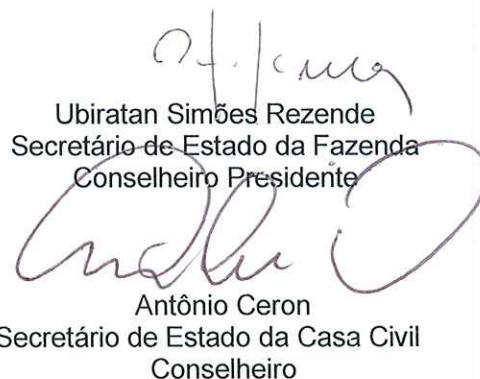 Ubiratan Simões Rezende
Secretário de Estado da Fazenda
Conselheiro Presidente
Antônio Ceron
Secretário de Estado da Casa Civil
Conselheiro